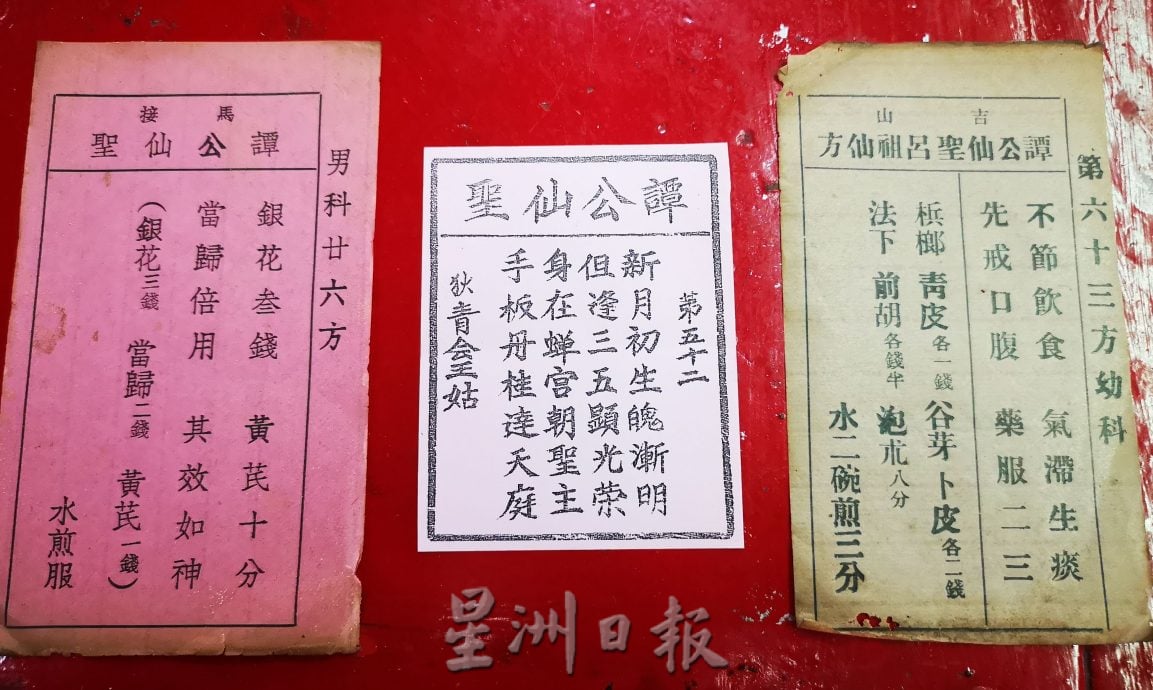 男科廿六方
馬接
譚公仙聖
銀花叁錢 黃芪十分
當歸倍用 其效如神
(銀花三錢 當歸二錢 黃芪一錢)
水煎服
譚公仙聖
第五十二
新月初生魄漸明
但逢三五顯光荣
身在蝉宫朝聖主
手板丹桂達天庭
狄青会姑
第六十三方幼科
吉山
譚公仙聖呂祖仙方
不節飲食 氣滯生痰
先戒口腹 藥服二三
梹榔 靑皮各一錢 谷芽卜皮各二錢
法下 前胡各錢半 泡朮八分 水二碗煎三分
星洲日报